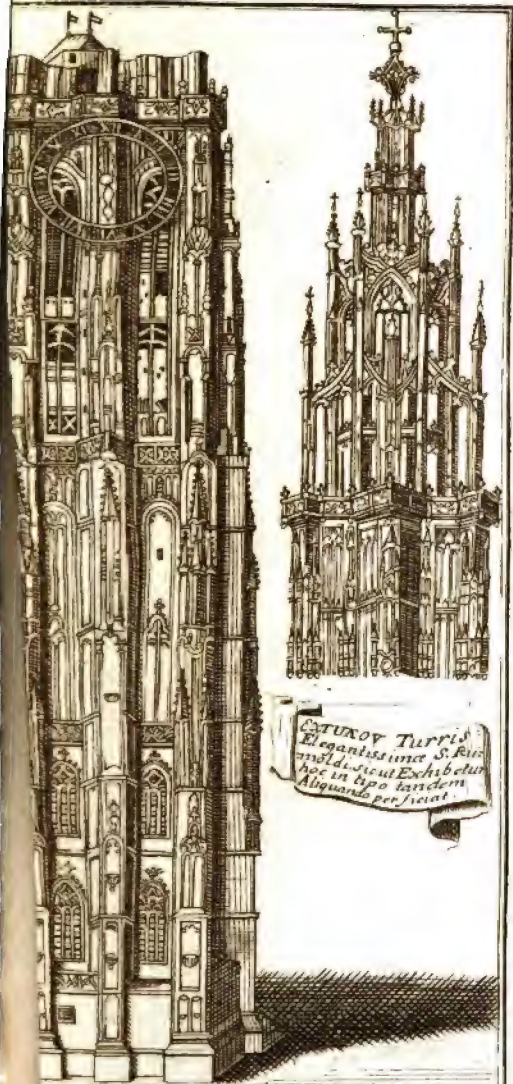 EXTURON Turris
Elegantissimæ S. Rui
moldi, sicut Exhibetur
hoc in tipo tandem
Aliquando perficiat.
XI XII